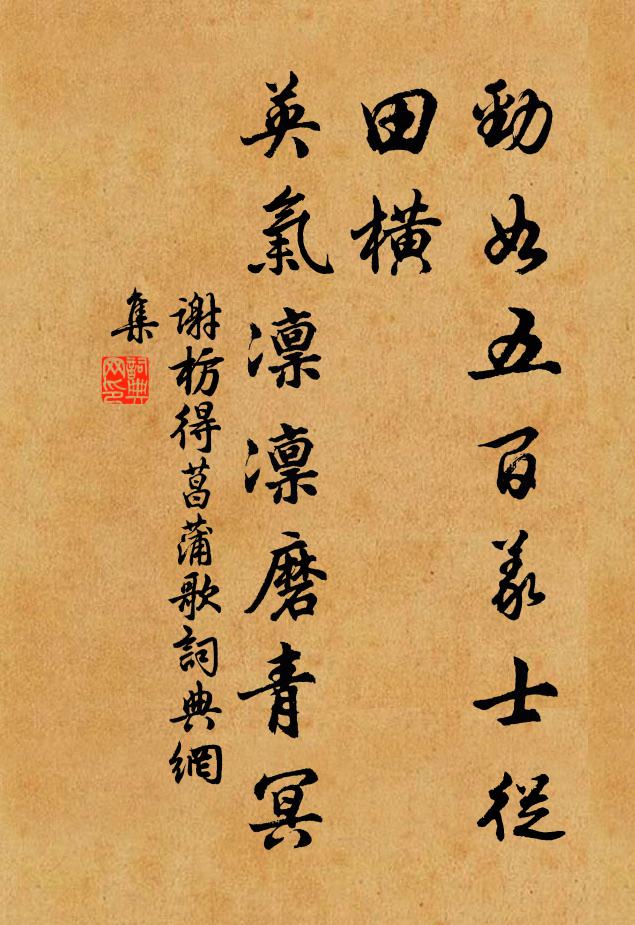 勁如五百義士從
田橫
英氣凛凛磨青冥
謝枋得菖蒲歌詞典網
集
詞典
网印